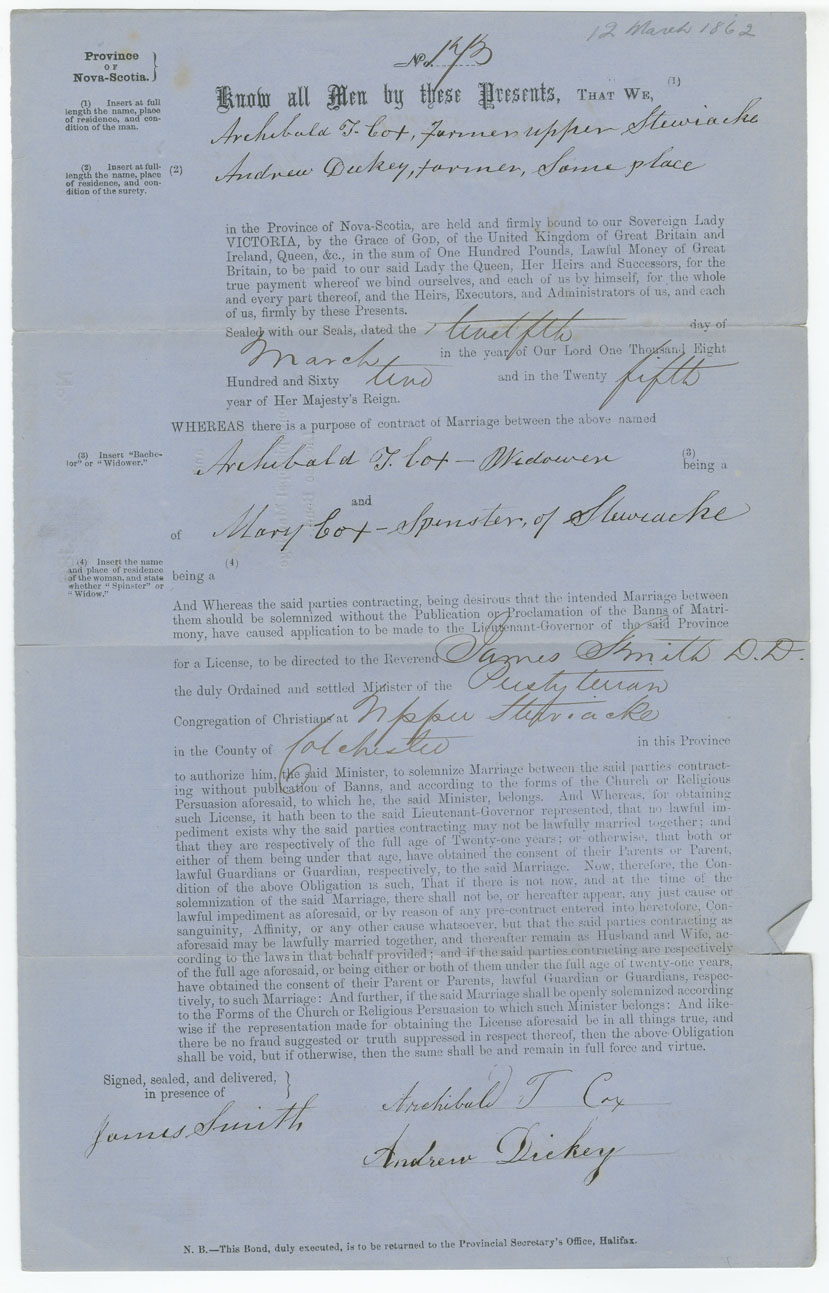 12 March 1862
Province
OF
Nova-Scotia.
No. 173
Know all Men by these Presents, THAT WE, (1)
(1) Insert at full
length the name, place
of residence, and con-
dition of the man.
Archibald T. Cox, Farmer upper Stewiacke
(2) Insert at full-
length the name, place
of residence, and con-
dition of the surety.
(2) Andrew Dickey, Farmer, Same place
in the Province of Nova-Scotia, are held and firmly bound to our Sovereign Lady
VICTORIA, by the Grace of GOD, of the United Kingdom of Great Britain and
Ireland, Queen, &c., in the sum of One Hundred Pounds, Lawful Money of Great
Britain, to be paid to our said Lady the Queen, Her Heirs and Successors, for the
true payment whereof we bind ourselves, and each of us by himself, for the whole
and every part thereof, and the Heirs, Executors, and Administrators of us, and each
of us, firmly by these Presents.
Sealed with our Seals, dated the twelfth day of
March in the year of Our Lord One Thousand Eight
Hundred and Sixty two and in the Twenty fifth
year of Her Majesty's Reign.
WHEREAS there is a purpose of contract of Marriage between the above named
(3) Insert "Bache-
lor" or "Widower."
Archibald T. Cox – Widower (3) being a
and
of Mary Cox – Spinster, of Stewiacke
(4) Insert the name
and place of residence
of the woman, and state
whether "Spinster" or
"Widow."
(4)
being a
And Whereas the said parties contracting, being desirous that the intended Marriage between
them should be solemnized without the Publication or Proclamation of the Banns of Matri-
mony, have caused application to be made to the Lieutenant-Governor of the said Province
for a License, to be directed to the Reverend James Smith D.D.
the duly Ordained and settled Minister of the Presbyterian
Congregation of Christians at Upper Stewiacke
in the County of Colchester in this Province
to authorize him, the said Minister, to solemnize Marriage between the said parties contract-
ing without publication of Banns, and according to the forms of the Church or Religious
Persuasion aforesaid, to which he, the said Minister, belongs. And Whereas, for obtaining
such License, it hath been to the said Lieutenant-Governor represented, that no lawful im-
pediment exists why the said parties contracting may not be lawfully married together; and
that they are respectively of the full age of Twenty-one years; or otherwise, that both or
either of them being under that age, have obtained the consent of their Parents or Parent,
lawful Guardians or Guardian, respectively, to the said Marriage. Now, therefore, the Con-
dition of the above Obligation is such, That if there is not now, and at the time of the
solemnization of the said Marriage, there shall not be, or hereafter appear, any just cause or
lawful impediment as aforesaid, or by reason of any pre-contract entered into heretofore, Con-
sanguinity, Affinity, or any other cause whatsoever, but that the said parties contracting as
aforesaid may be lawfully married together, and thereafter remain as Husband and Wife, ac-
cording to the laws in that behalf provided; and if the said parties contracting are respectively
of the full age aforesaid, or being either or both of them under the full age of twenty-one years,
have obtained the consent of their Parent or Parents, lawful Guardian or Guardians, respec-
tively, to such Marriage: And further, if the said Marriage shall be openly solemnized according
to the Forms of the Church or Religious Persuasion to which such Minister belongs: And like-
wise if the representation made for obtaining the License aforesaid be in all things true, and
there be no fraud suggested or truth suppressed in respect thereof, then the above Obligation
shall be void, but if otherwise, then the same shall be and remain in full force and virtue.
Signed, sealed, and delivered,
in presence of
James Smith
Archibald T Cox
Andrew Dickey
N. B.—This Bond, duly executed, is to be returned to the Provincial Secretary's Office, Halifax.